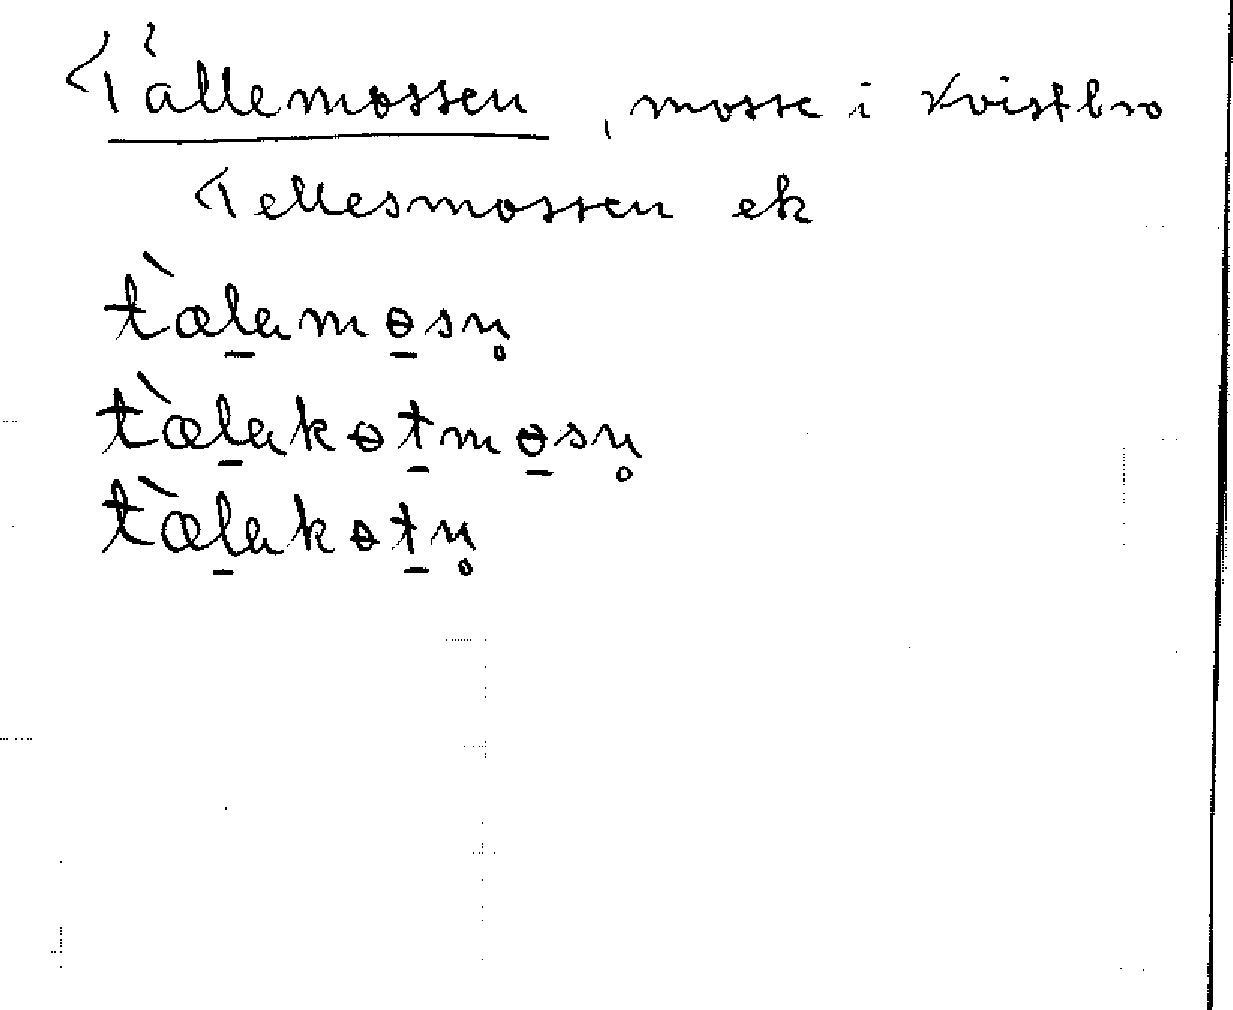 Tällemossen, mosse i Kvistbro
Tellesmossen ek
t̀æl̲amɵ̲sn̥
t̀æl̲akɵt̲mɵ̲sn̥
t̀æl̲akɵt̲n̥